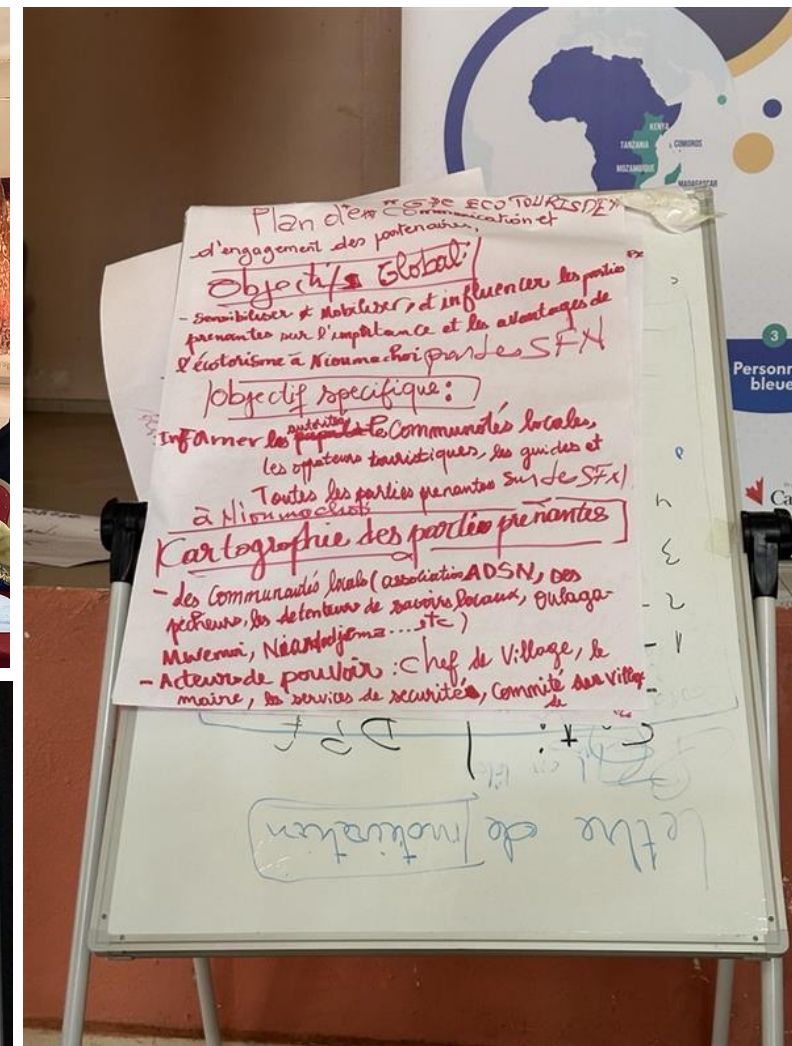 KENYA
TANZANIA
COMOROS
MOZAMBIQUE
MADAGASCAR
3
Personn
bleue
Ca
Plan de communication et
"G>C ECOTOURISDE"
d'engagement des partenaires,
Objectifs Global:
- Sensibiliser et Mobiliser, et influencer les parties
prenantes sur l'importance et les avantages de
l'écotorisme à Nioumachoi par les SFN
Objectif specifique:
Informer les autorités Communotés locales,
les opérateurs touristiques, les guides et
Toutes les parties prenantes sur de SFN
à Nioumachoi
Cartographie des parties prenantes
- des Communautés locals (association ADSN, des
pecheurs, les detenteurs de savoirs locaux, Oulaga-
Mwemoi, etc)
- Acteurs de pouvoir: Chef de Village, le
maire, les services de securités, Commité village
de
DPC
1 -
2 -
3
4
lettre de motivation